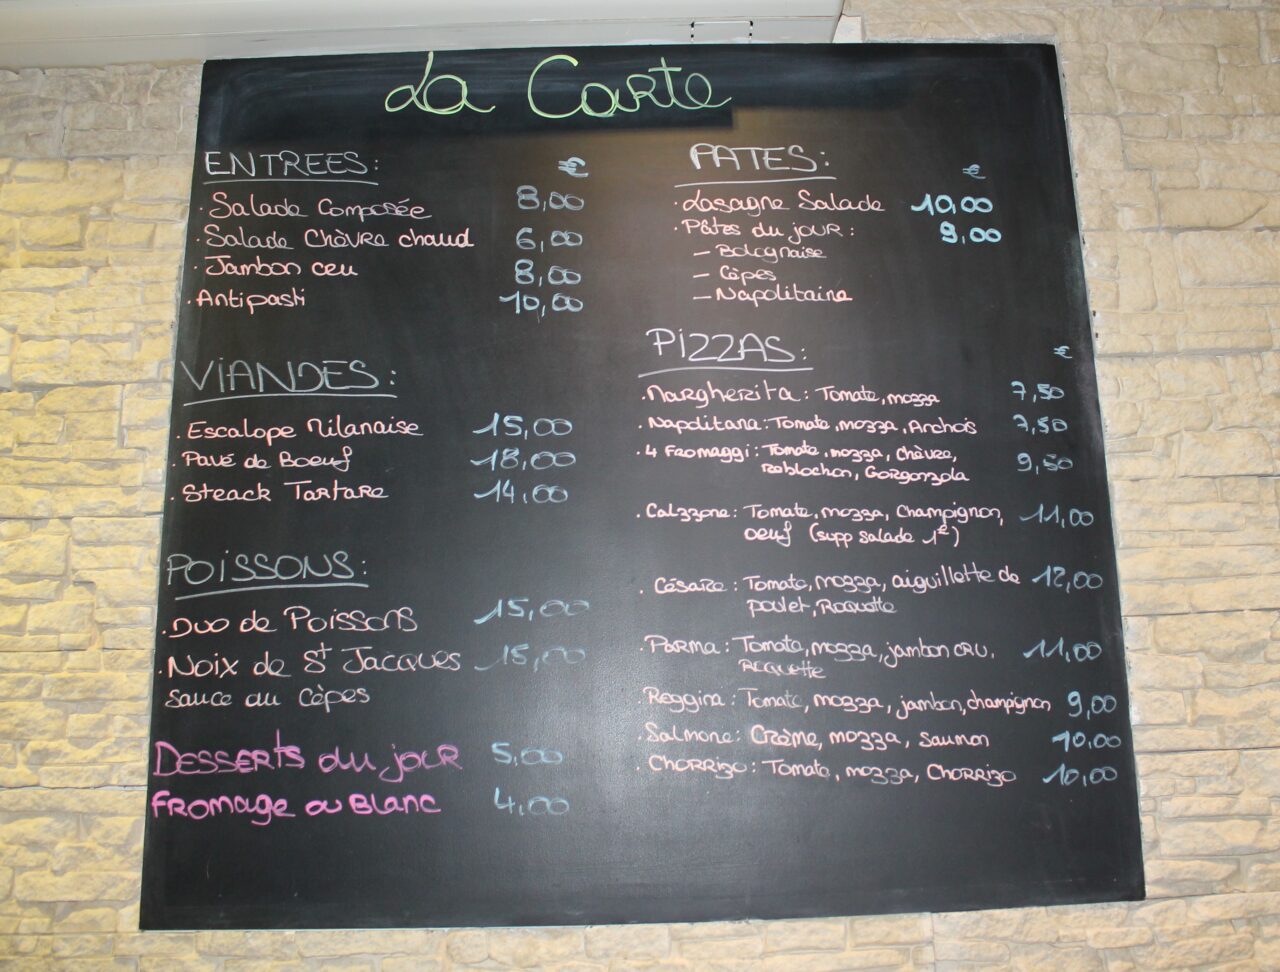 La Carte
ENTREES: €
. Salade Composée 8,00
. Salade Chèvre chaud 6,00
. Jambon cru 8,00
. Antipasti 10,00
VIANDES:
. Escalope Milanaise 15,00
. Pavé de Boeuf 18,00
. Steack Tartare 14,00
POISSONS:
. Duo de Poissons 15,00
. Noix de St Jacques 15,00
sauce au Cèpes
Desserts du jour 5,00
Fromage ou Blanc 4,00
PATES: €
. Lasagne Salade 10,00
. Pâtes du jour: 9,00
– Bolognaise
– Cèpes
– Napolitaine
PIZZAS: €
. Margherita: Tomate, mozza 7,50
. Napolitana: Tomate, mozza, Anchois 7,50
. 4 Fromaggi: Tomate, mozza, chèvre, 9,50
Reblochon, Gorgonzola
. Calzzone: Tomate, mozza, Champignon, 11,00
oeuf (supp salade 1€)
. Césaire: Tomate, mozza, aiguillette de 12,00
poulet, Roquette
. Parma: Tomate, mozza, jambon cru, 11,00
Roquette
. Reggina: Tomate, mozza, jambon, champignon 9,00
. Salmone: Crème, mozza, saumon 10,00
. Chorrizo: Tomate, mozza, Chorrizo 10,00